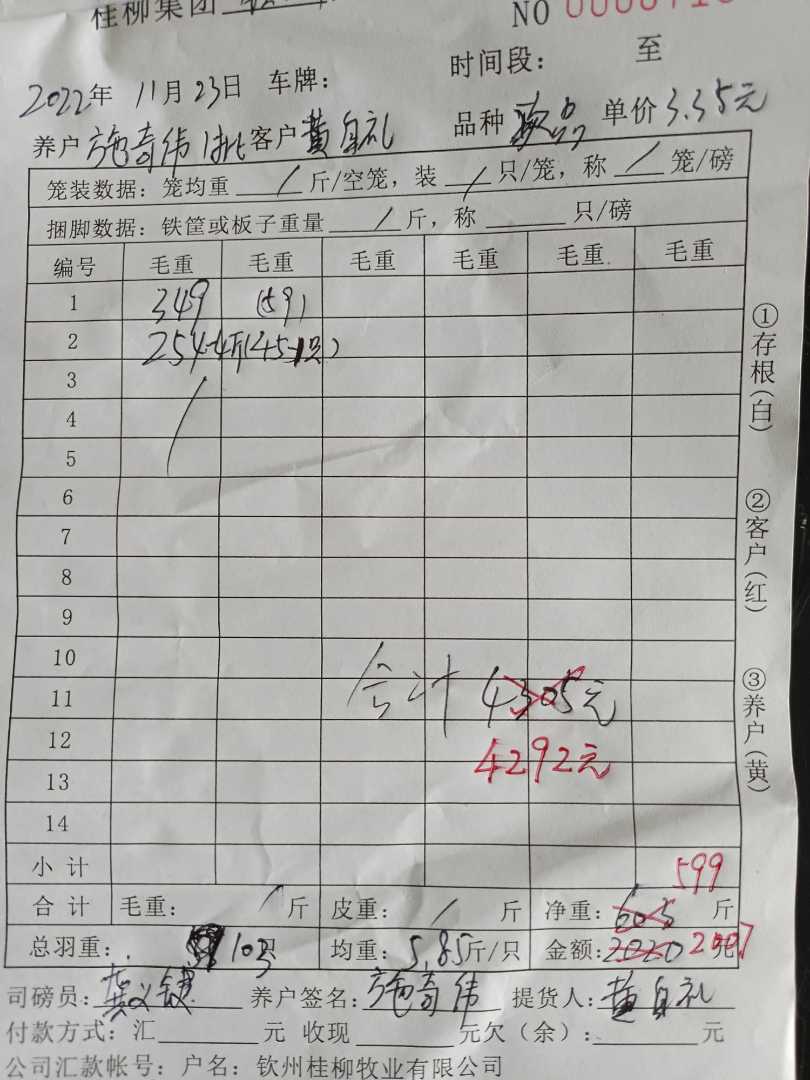 桂柳集团
NO
2022年 11月23日 车牌: 时间段: 至
养户 施奇伟 1批 客户 黄自礼 品种 次品 单价 3.35元
笼装数据: 笼均重 / 斤/空笼, 装 / 只/笼, 称 / 笼/磅
捆脚数据: 铁筐或板子重量 / 斤, 称 只/磅
编号 毛重 毛重 毛重 毛重 毛重 毛重
1 349 (59)
2 254-4斤(45-1只)
3
4
5
6
7
8
9
10
11 合计 4305元
12 4292元
13
14
小计 599
合计 毛重: / 斤 皮重: / 斤 净重: 605 斤
总羽重: 103 只 均重: 5.85斤/只 金额: 2020 2007 元
司磅员: 龚义键 养户签名: 施奇伟 提货人: 黄自礼
付款方式: 汇 元 收现 元欠(余): 元
公司汇款帐号: 户名: 钦州桂柳牧业有限公司
①存根(白)
②客户(红)
③养户(黄)